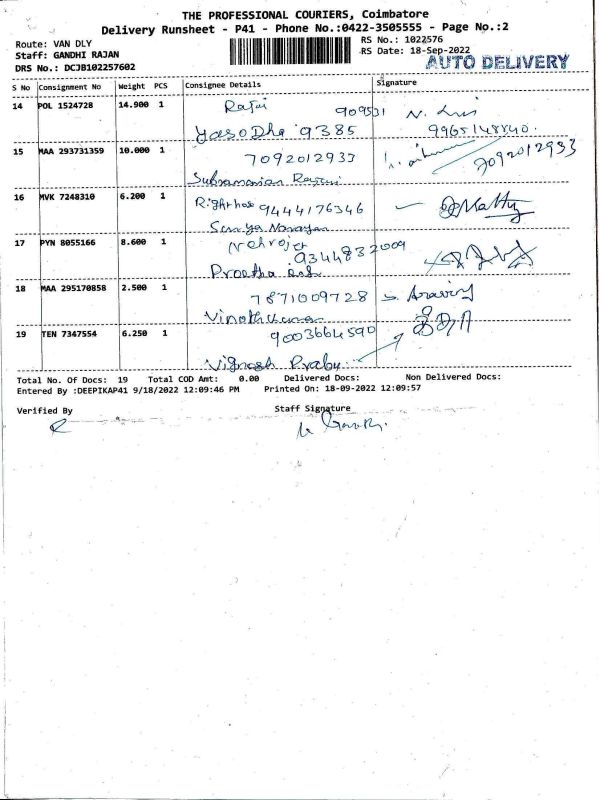 THE PROFESSIONAL COURIERS, Coimbatore
Delivery Runsheet - P41 - Phone No.:0422-3505555 - Page No.:2
Route: VAN DLY
RS No.: 1022576
Staff: GANDHI RAJAN
RS Date: 18-Sep-2022
DRS No.: DCJB102257602
AUTO DELIVERY
S No Consignment No Weight PCS Consignee Details Signature
14 POL 1524728 14.900 1 Rajai 909531
YasoDha 9385 9965148840.
15 MAA 293731359 10.000 1 7092012933 7092012933
Subramanian
16 MVK 7248310 6.200 1 9444176346
Narayan
17 PYN 8055166 8.600 1 9344832009
Preetha
18 MAA 295170858 2.500 1 7871009728
19 TEN 7347554 6.250 1 9003664590
Vignesh Prabu
Total No. Of Docs: 19 Total COD Amt: 0.00 Delivered Docs: Non Delivered Docs:
Entered By :DEEPIKAP41 9/18/2022 12:09:46 PM Printed On: 18-09-2022 12:09:57
Verified By Staff Signature